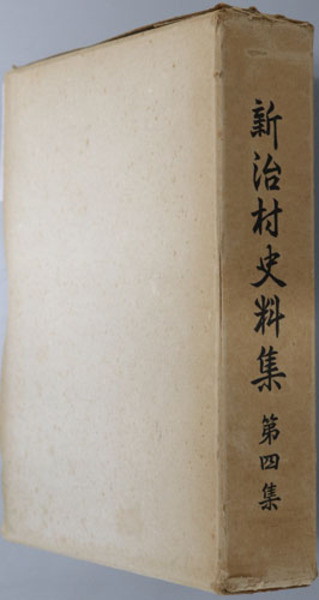 新治村史料集 第四集